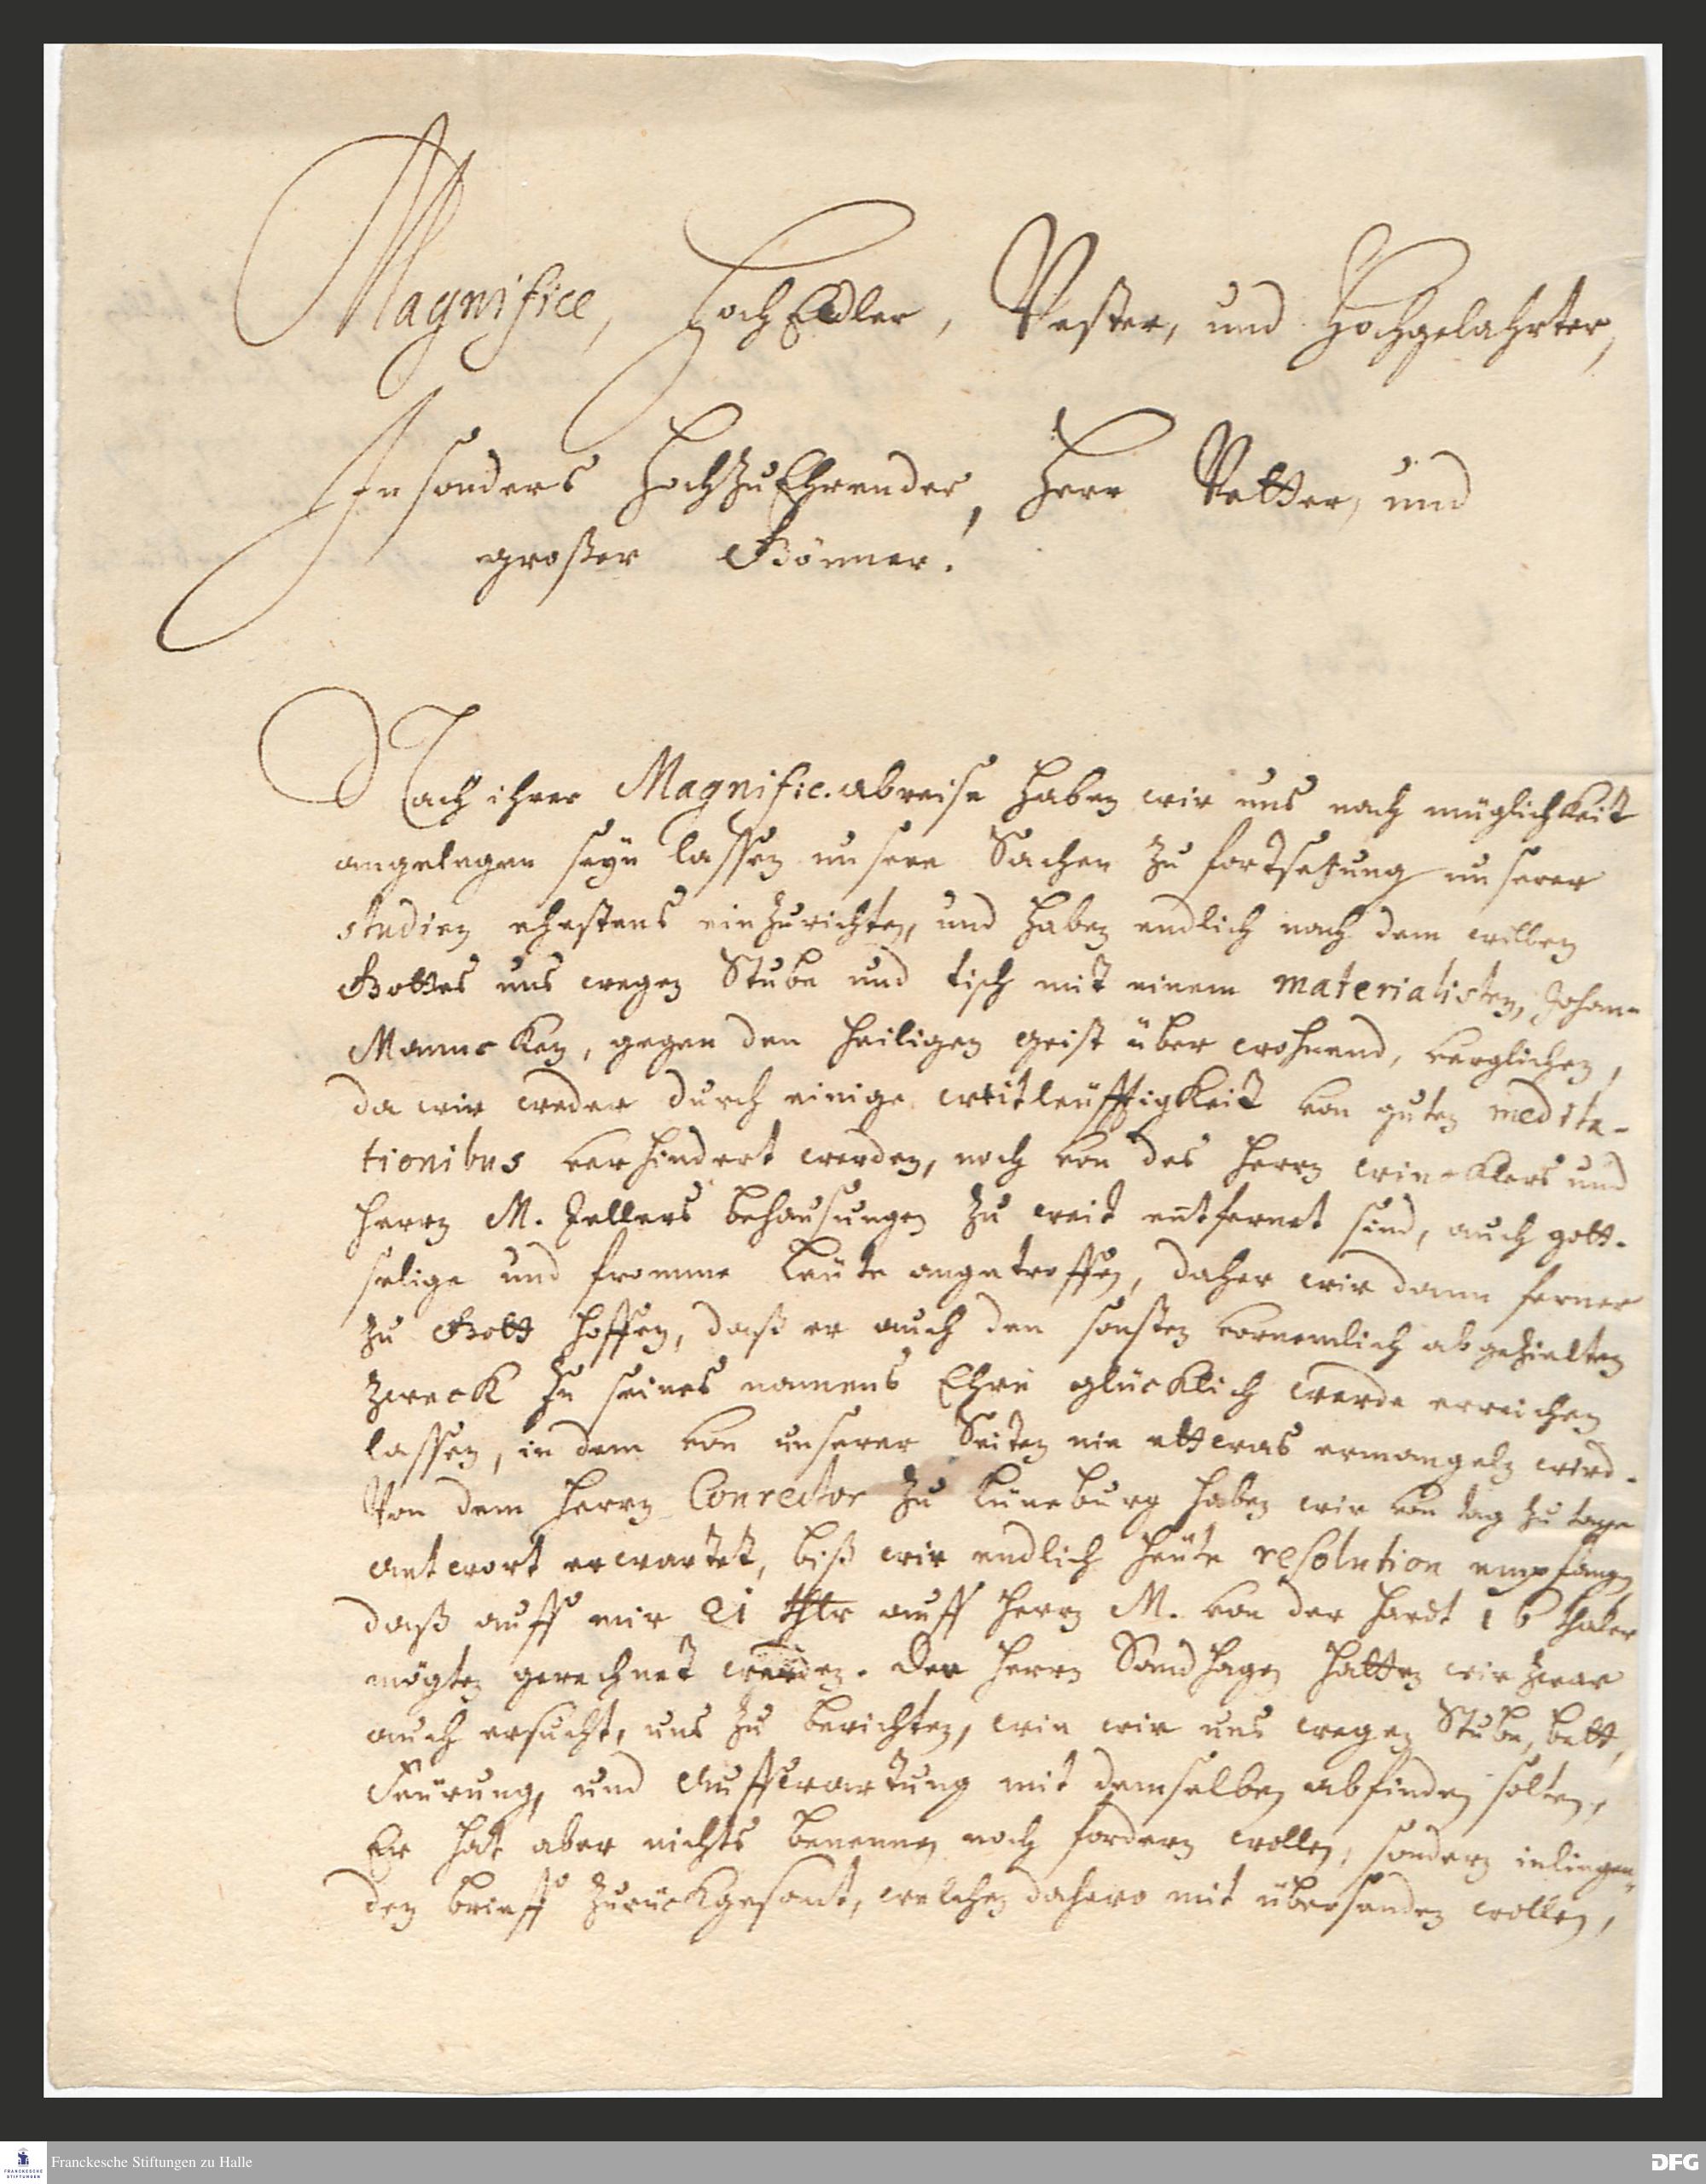 Magnifice, HochEdler, Vester, und Hochgelahrter,
Insonders HochzuEhrender, Herr Vetter, und
großer Gönner.
Nach ihrer Magnific. abreise haben wir uns nach müglichkeit
angelegen seyn lassen unsere Sachen zu fortsetzung unserer
studien ehestens einzurichten, und haben endlich nach dem willen
Gottes uns wegen Stube und tisch mit einem materialisten, Johan
Mannecken, gegen den heiligen geist über wohnend, verglichen,
da wir weder durch einige weitleüfftigkeit von guten medita-
tionibus verhindert werden, noch von des herrn wincklers und
herrn M. Zellers behausungen zu weit entfernet sind, auch gott-
selige und fromme Leüte angetroffen, daher wir dann ferner
zu Gott hoffen, daß er auch den sonsten vornemlich abgezielten
zweck zu seines namens Ehre glücklich werde erreichen
lassen, in dem von unserer Seiten nie ettwas ermangeln wird.
Von dem herrn Conrector zu Lüneburg haben wir von tag zu tage
antwort erwartet, biß wir endlich heüte resolution empfangen
daß auff mir 21 thlr auff herrn M. von der hardt 16 thaler
mögten gerechnet werden. Den herrn Sandhagen hatten wir zwar
auch ersucht, uns zu berichten, wie wir uns wegen Stube, bett,
Feürung, und Auffwartung mit demselben abfinden solten,
Er hat aber nichts benennen noch fordern wollen, sondern inliegen-
den brieff zurückgesant, welchen dahero mit übersenden wollen,
Franckesche Stiftungen zu Halle
FRANCKESCHE
STIFTUNGEN
DFG